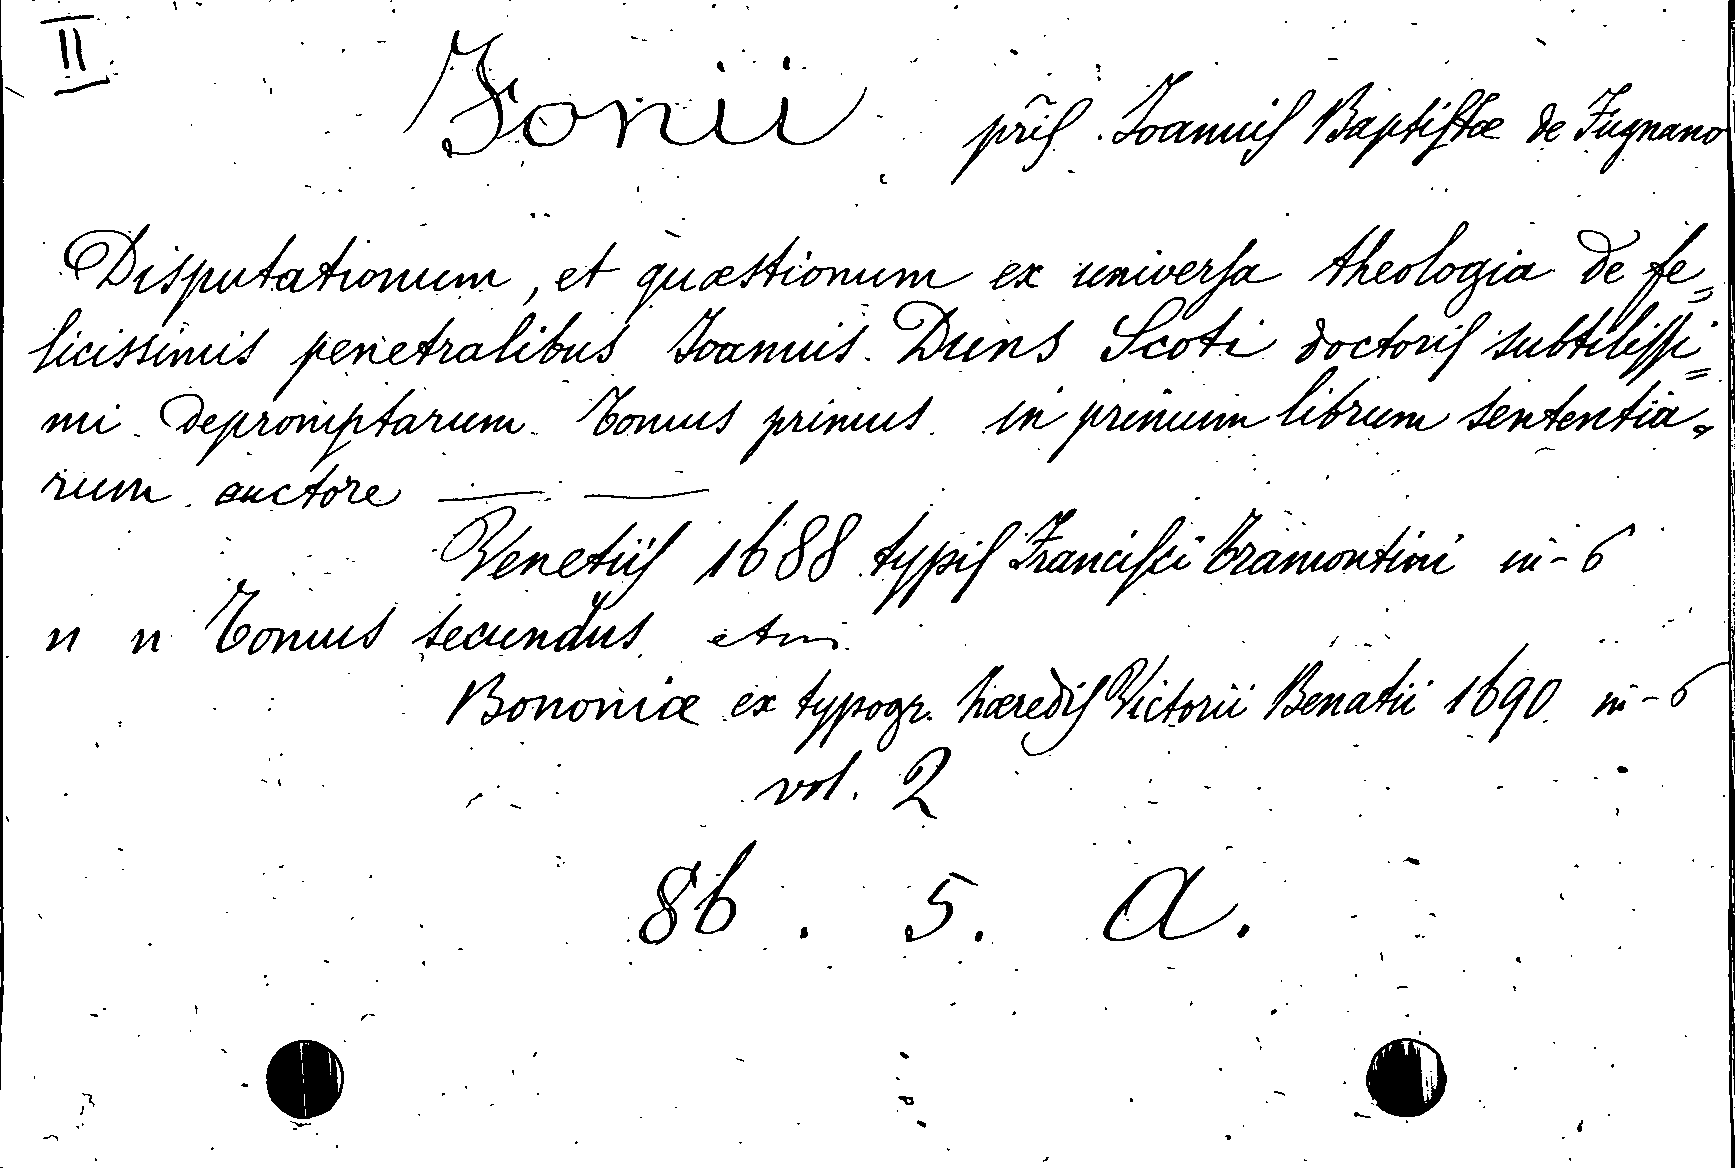 II
Jonii pris. Joannis Baptistæ de Fugnano
Disputationum, et quæstionum ex universa theologia de fe=
licissimis penetralibus Joannis Duns Scoti doctoris subtilissi=
mi depromptarum Tomus primus in primum librum sententia=
rum auctore — —
Venetiis 1688 typis Francisci Tramontini in-6
" " Tomus secundus
Bononiæ ex typogr. hæredis Victorii Benatii 1690 in-6
vol. 2
86. 5. A.